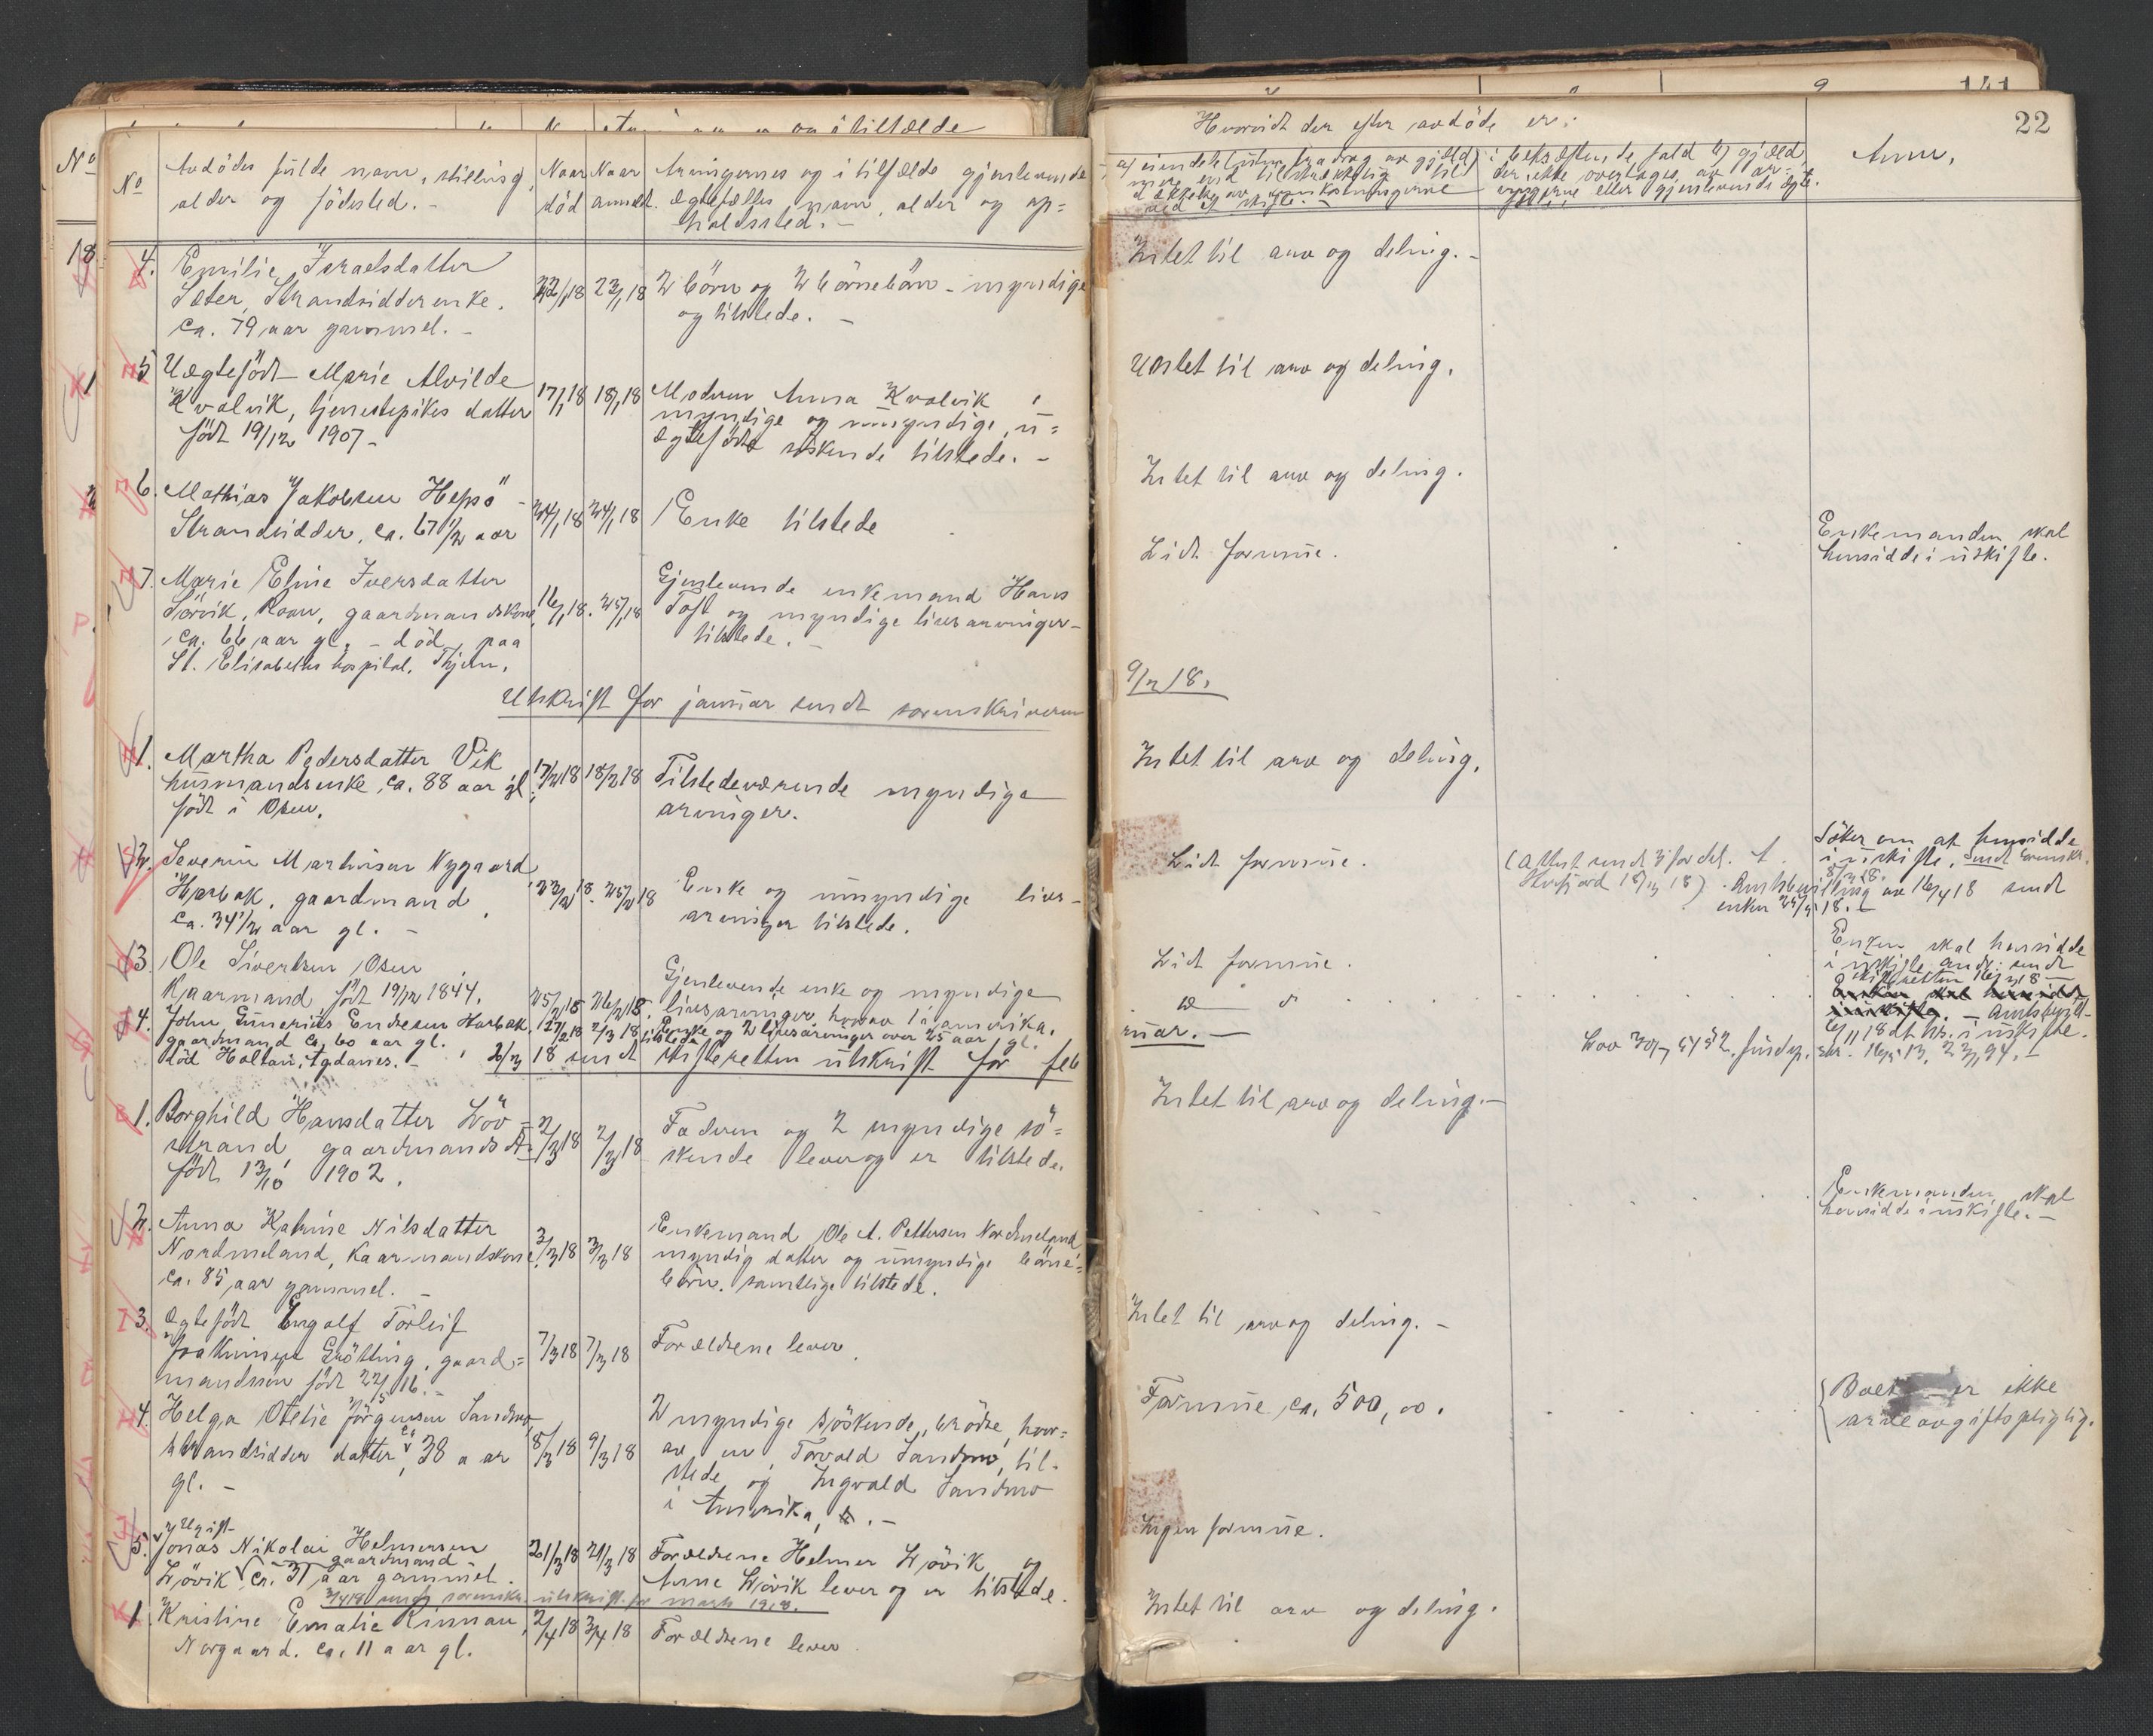 No
Avdödes fulde navn, stilling,
alder og födested. -
Naar
död
Naar
anmeldt.
Arvingernes og i tilfælde gjenlevende
ægtefælles navn, alder og op=
holdssted. -
4. Emilie Israelsdatter
Sæter, Strandsidderenke.
ca. 79 aar gammel. -
22/1 18
23/1 18
2 börn og 2 börnebörn - myndige
og tilstede. -
5 Uegtefödt Marie Alvilde
Kvalvik, tjenestepikes datter
födt 19/12 1907 -
17/1 18
18/1 18
Moderen Anna Kvalvik,
myndige og umyndige, u=
ægtefödte söskende tilstede. -
6. Mathias Jakobsen Hepsö -
Strandsidder, ca. 67 1/2 aar
24/1 18
24/1 18
Enke tilstede
7. Marie Eline Iversdatter
Sörvik, Roan, gaardmandskone,
ca. 66 aar gl. - död paa
St. Elisabeths hospital, Thjem.
16/1 18.
25/1 18
Gjenlevende enkemand Hans
Toft og myndige livsarvinger -
tilstede. -
Utskrift for januar sendt sorenskriveren
1. Martha Pedersdatter Vik
husmandsenke, ca. 88 aar gl.
födt i Osen.
17/2 18
18/2 18
Tilstedeværende myndige
arvinger.
2. Severin Martinsen Nygaard
Harbak, gaardmand
ca. 34 1/2 aar gl. -
23/2 18.
25/2 18
Enke og umyndige livs-
arvinger tilstede.
3. Ole Sivertsen Osen
Kaarmand födt 19/12 1844.
25/2 18
26/2 18.
Gjenlevende enke og myndige
livsarvinger, hvorav 1 i amerika.
4. John Gunerius Endresen Harbak,
gaardmand ca 60 aar gl.
död Holtan, Agdanes. -
17/2 18
2/3 18
Enke og 2 livsarvinger over 25 aar gl.
tilstede
2/3 18 sendt skifteretten utskrift for feb
1. Borghild Hansdatter Löv=
strand gaardmandsdt.
födt 13/10 1902.
2/3 18
2/3 18
Faderen og 2 myndige sö=
skende lever og er tilstede.
2. Anna Katrine Nilsdatter
Nordmeland, kaarmandskone,
ca. 85 aar gammel. -
3/3 18
3/3 18
Enkemand Ole A. Pettersen Nordmeland
myndig datter og umyndige börne=
börn. samtlige tilstede.
3. Ægtefödt Engolf Torleif
Joakimsen Grötting, gaard=
mandssön födt 22/5 16. -
7/3 18
7/3 18
Forældrene lever.
4. Helga Otelie Jörgensen Sandmo
strandsidder datter, ca 38 aar
gl. -
8/3 18
9/3 18
2 myndige sjöskende, brödre, hvor=
av en, Torvald Sandmo, til-
stede og Ingvald Sandmo
i Amerika. -
5. Ugift
Jonas Nikolai Helmersen
gaardmand
Lövik ca. 31 aar gammel.
21/3 18
21/3 18
Forældrene Helmer Lövik og
Anne Lövik lever og er tilstede.
3/4 18 sendt sorenskr. utskrift for marts 1918.
1. Kristine Emalie Rinnan,
Norgaard. ca. 11 aar gl.
2/4 18
3/4 18
Forældrene lever
22
Hvorvidt der efter avdöde er:
a) eiendele utover fradrag av gjæld,
mer end tilstrækkelig til
dækkelse av omkostningerne
ved et skifte. -
i bekræftende fald b) gjæld,
der ikke overtages av ar=
vingerne eller gjenlevende ægte.
Anm.
Intet til arv og deling. -
Untet til arv og deling.
Intet til arv og deling.
Lidt formue.
Enkemanden skal
hensidde i uskifte.
9/2 18.
Intet til arv og deling.
Lidt formue.
(Attest sendt
18/3 18)
Söker om at hensidde
i uskifte. Sendt sorenskr.
8/3 18.
Amtsbevilling av 16/4 18 sendt
enken 25/4 18. -
Lidt formue.
Enken skal hensidde
i uskifte
skifteretten
do
ruar. -
Lov 30/7
Intet til arv og deling. -
Enkemanden skal
hensidde i uskifte. -
Intet til arv og deling. -
Formue ca. 500,00.
Boet er ikke
arveavgiftspligtig.
Ingen formue.
Intet til arv og deling.